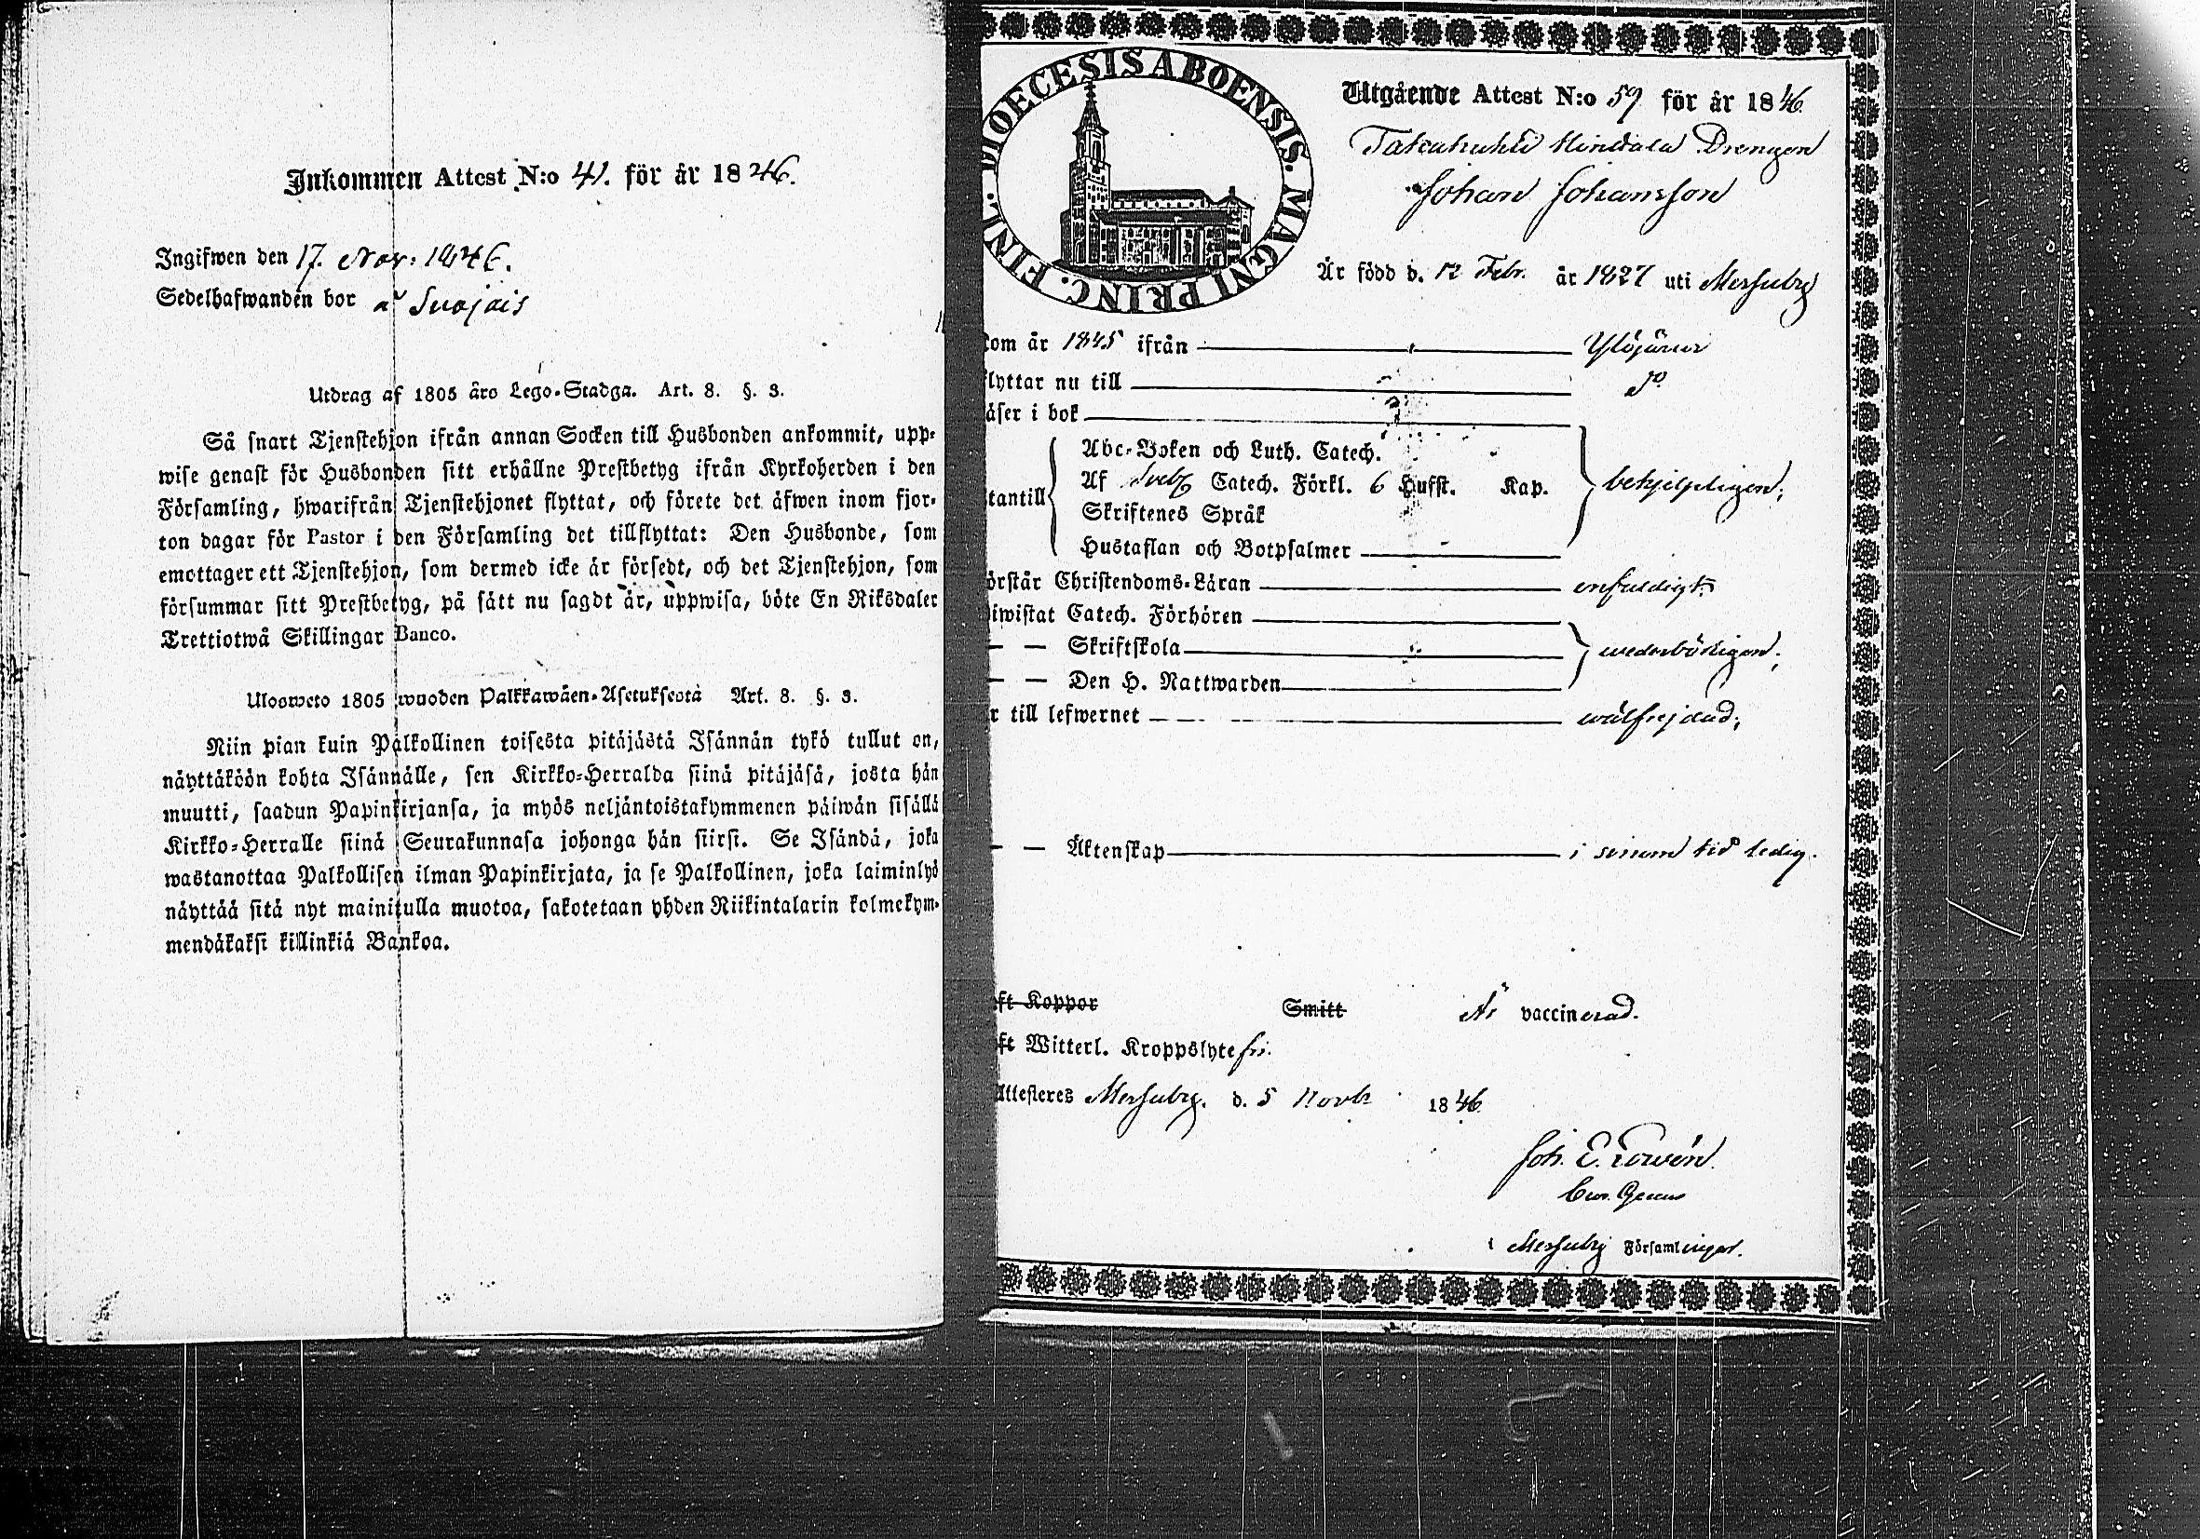 Inkommen Attest N:o 41. för år 1846.
Ingifwen den 17. Nov. 1846.
Sedelhafwanden bor å Suojois
Utdrag af 1805 åro Lego-Stadga. Art. 8. §. 3.
Så snart Tjenstehjon ifrån annan Socken till Husbonden ankommit, upp-
wise genast för Husbonden sitt erhållne Prestbetyg ifrån Kyrkoherden i den
Församling, hwarifrån Tjenstehjonet flyttat, och förete det äfwen inom fjor-
ton dagar för Pastor i den Församling det tillflyttat: Den Husbonde, som
emottager ett Tjenstehjon, som dermed icke är försedt, och det Tjenstehjon, som
försummar sitt Prestbetyg, på sätt nu sagdt är, uppwisa, böte En Riksdaler
Trettiotwå Skillingar Banco.
Ulosweto 1805 wuoden Palkkawäen-Asetuksesta Art. 8. §. 3.
Niin pian kuin Palkollinen toisesta pitäjästä Isännän tykö tullut on,
näyttäköön kohta Isännälle, sen Kirkko-Herralda siinä pitäjäsä, josta hän
muutti, saadun Papinkirjansa, ja myös neljäntoistakymmenen päiwän sisällä
Kirkko-Herralle siinä Seurakunnasa johonga hän siirsi. Se Isändä, joka
wastanottaa Palkollisen ilman Papinkirjata, ja se Palkollinen, joka laiminlyö
näyttää sitä nyt mainitulla muotoa, sakotetaan yhden Riikintalarin kolmekym-
mendäkaksi killinkiä Bankoa.
DIOECESIS ABOENSIS. MAGNI PRINC. FINL.
Utgående Attest N:o 59 för år 1846.
Drengen
Johan Johansson
Är född d. 12 Febr. år 1827 uti Messuby
kom år 1845 ifrån Ylöjärvi
flyttar nu till do
läser i bok
Abc-Boken och Luth. Catech.
utantill Af Sveb. Catech. Förkl. 6 Hufst. Kap. behjelpligen;
Skriftenes Språk
Hustaflan och Botpsalmer
örstår Christendoms-Läran enfaldigt;
biwistat Catech. Förhören
— — Skriftskola wederbörligen;
— — Den H. Nattwarden
r till lefwernet wälfrejdad;
— — Äktenskap i sinom tid ledig.
ft Koppor Smitt Är vaccinerad.
ft Witterl. Kroppslyte fri.
Attesteres Messuby. d. 5 Novbr 1846
Joh. E.
i Messuby Församlingar.